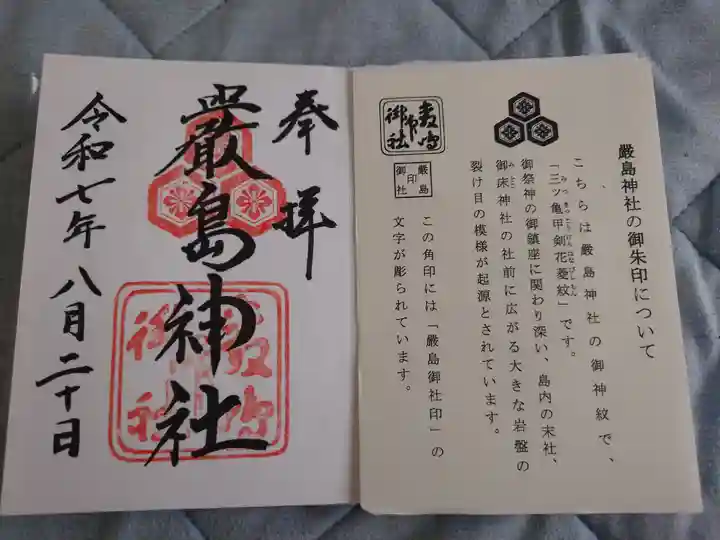 奉拝
嚴島神社
令和七年八月二十日
嚴島神社の御朱印について
こちらは嚴島神社の御神紋で、
「三ッ亀甲剣花菱紋」です。
みつきっこうけんはなびしもん
御祭神の御鎮座に関わり深い、島内の末社、
御床神社の社前に広がる大きな岩盤の
みとこ
裂け目の模様が起源とされています。
嚴島
御社
印
この角印には「嚴島御社印」の
文字が彫られています。